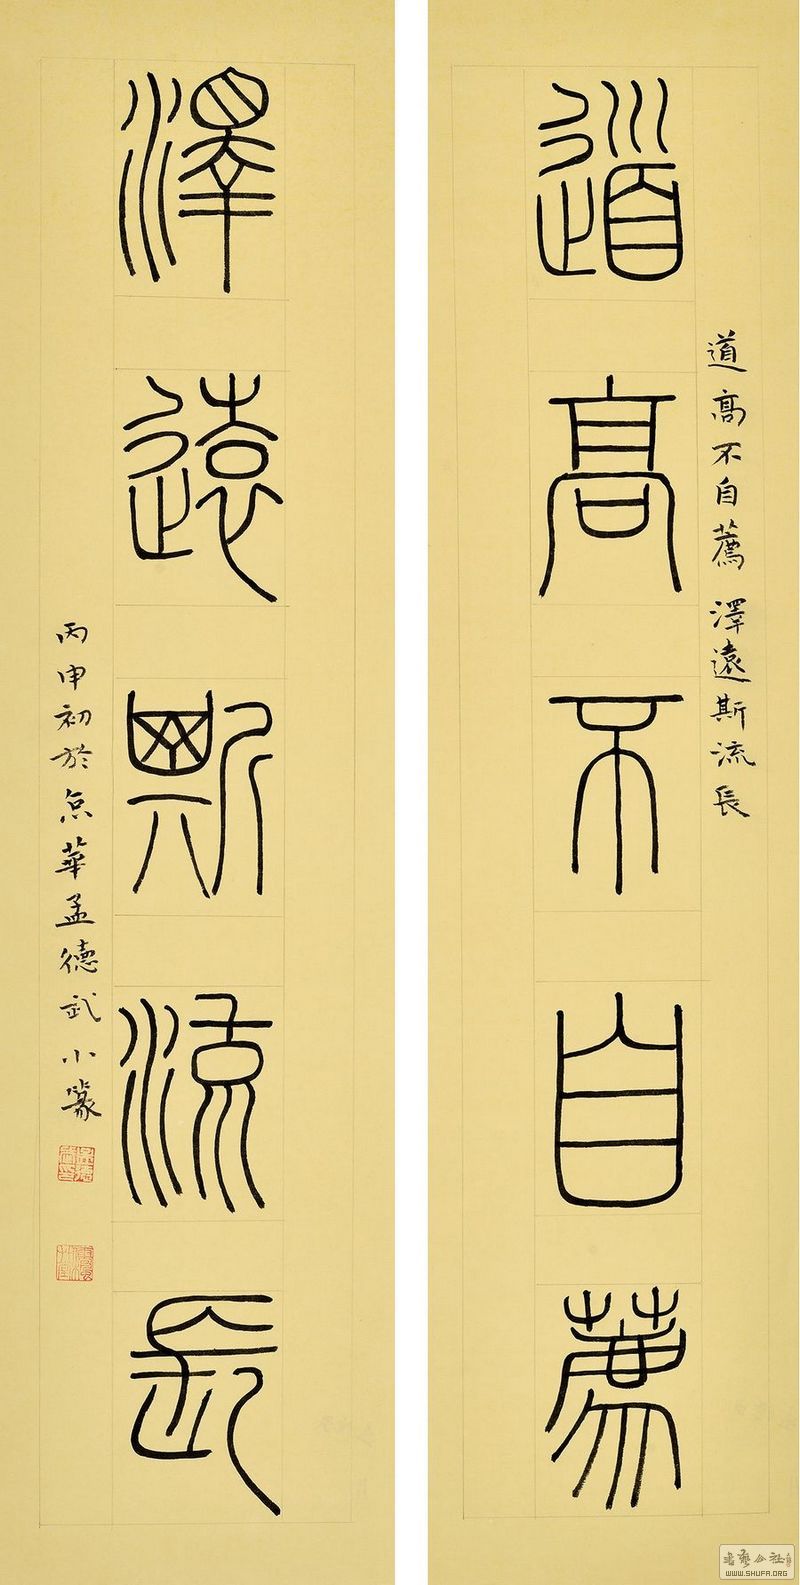 道高不自薦
道高不自薦澤遠斯流長
澤遠斯流長
丙申初於京華孟德武小篆
書法公社
WWW.SHUFA.ORG